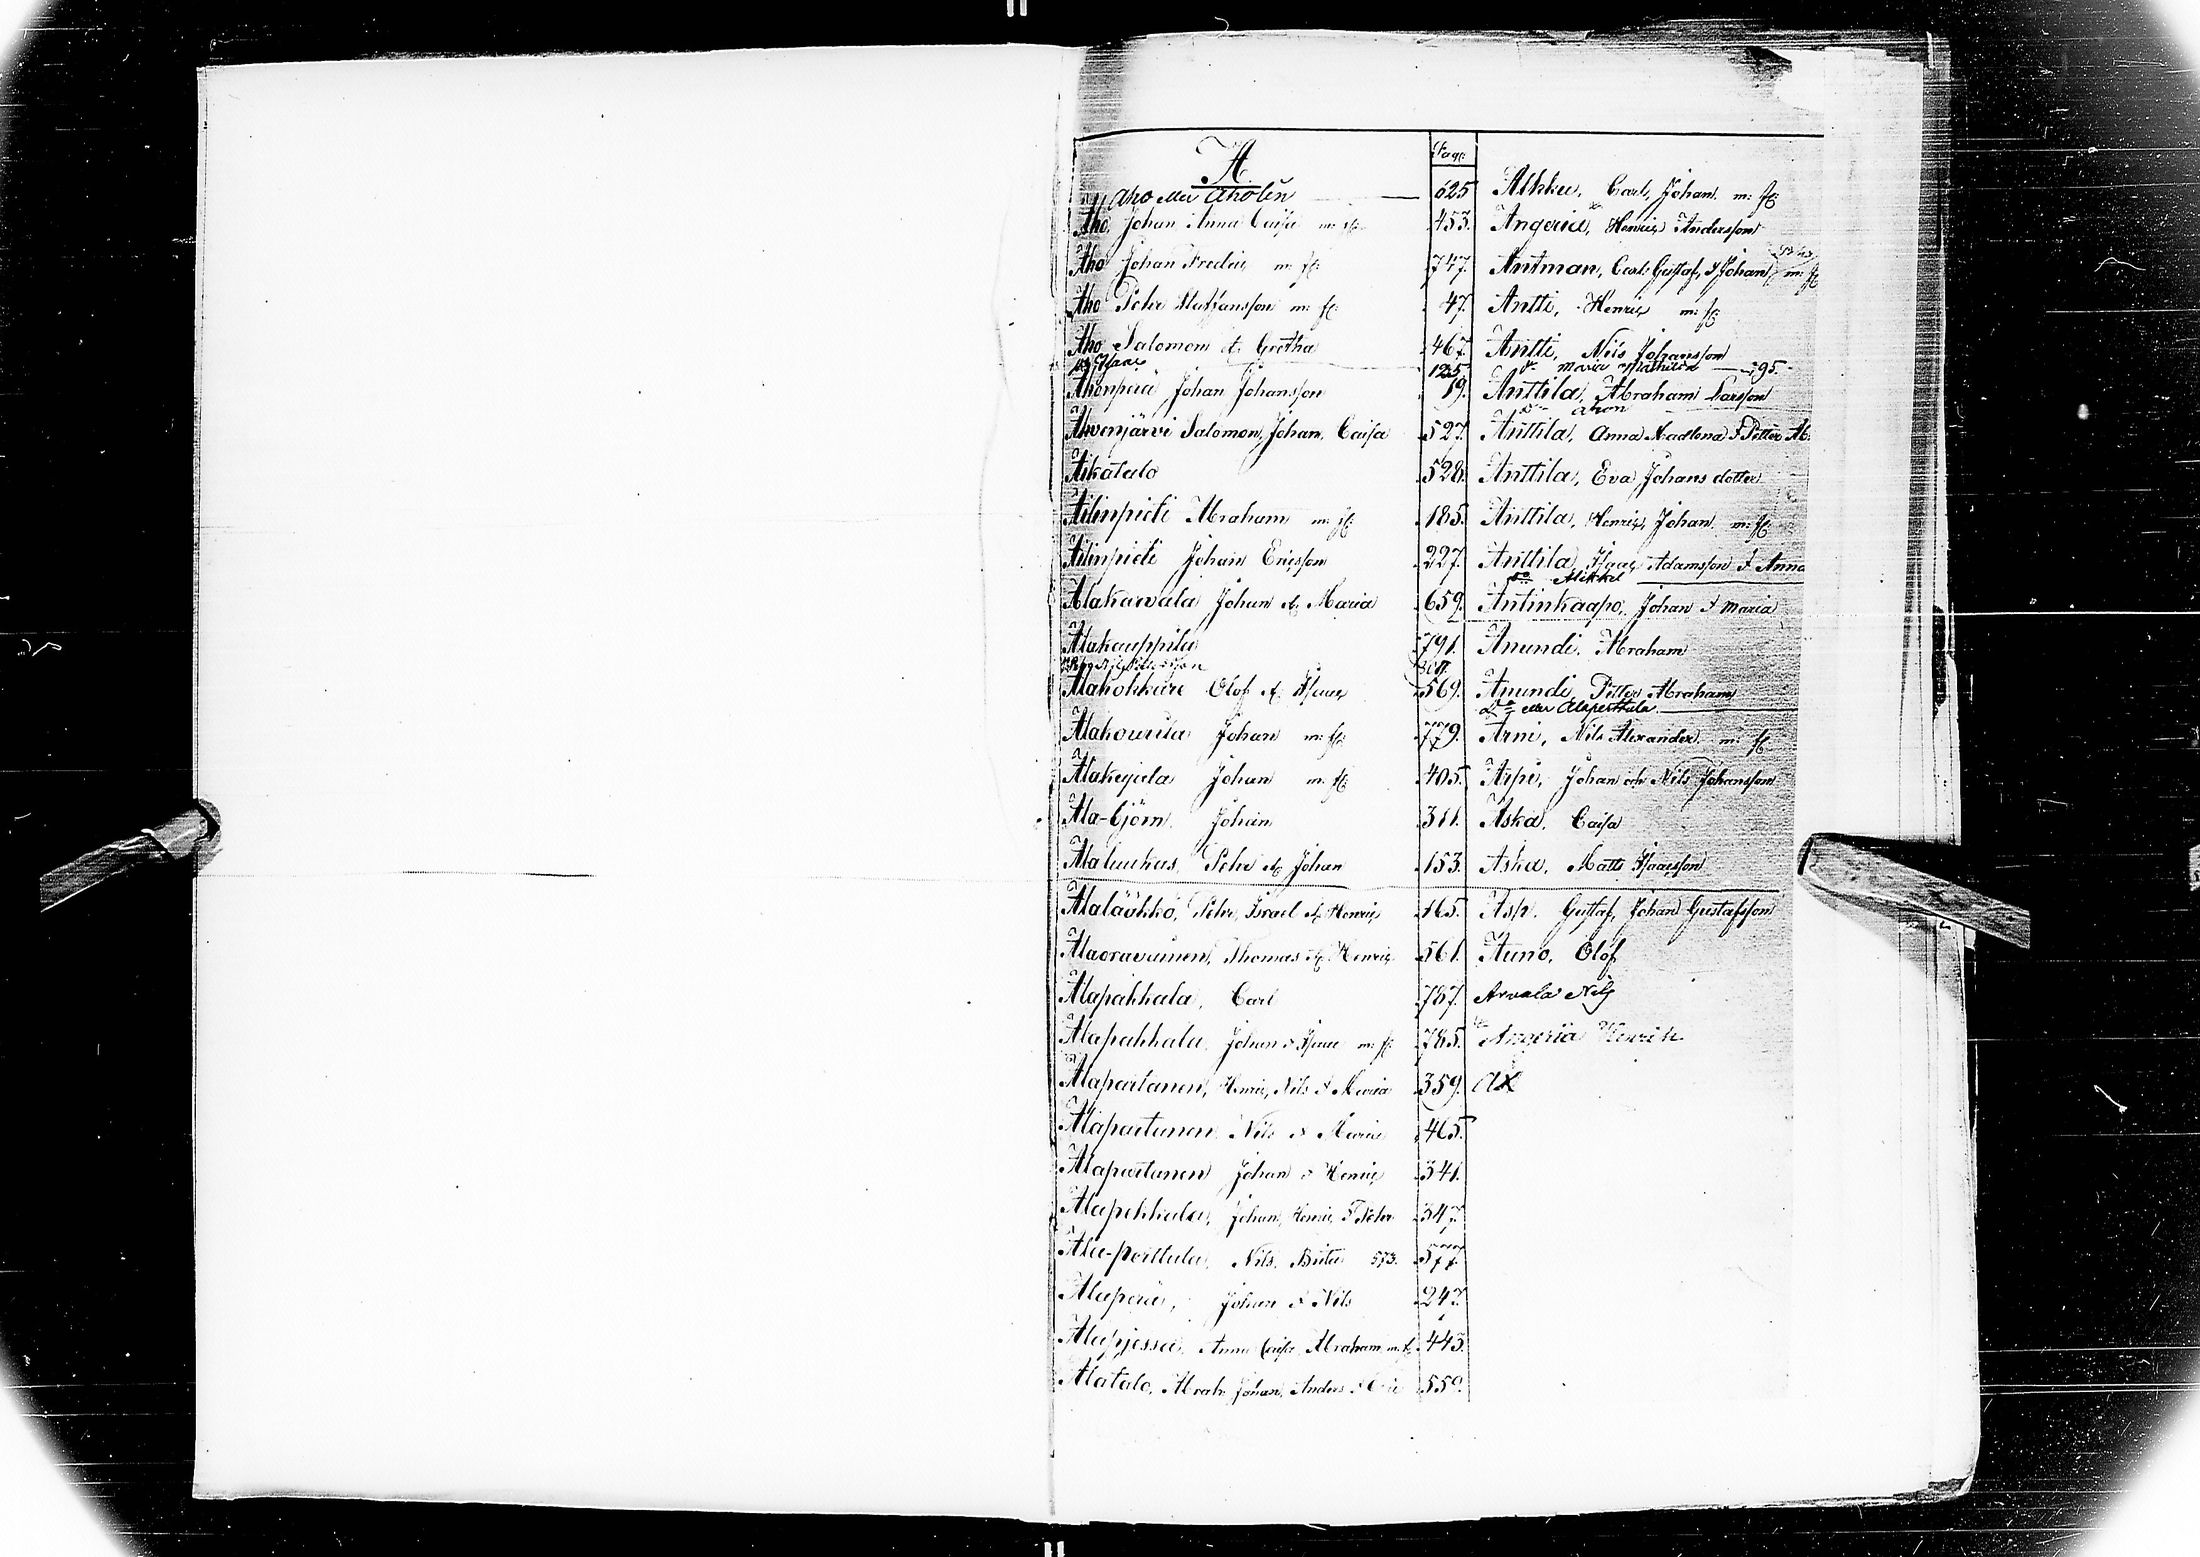 A.
Pag:
Aho eller Aholen 625
Aho, Johan Anna Caisa m: fl: 453.
Aho Johan Fredric m: fl: 747.
Aho Pehr Matssansson m: fl: 47.
Aho Salomon & Gretha 467.
125
Ahonperä Johan Johansson 19.
Ahvenjärvi Salomon, Johan, Caisa 527.
Aikatalo 528.
Ailinpieti Abraham m: fl: 185.
Ailinpieti Johan Ericsson 227.
Alakarvala Johan & Maria 659.
Alakauppila 791.
307
Alakokkare Olof & Isaac 569.
Alakourila Johan m: fl: 779.
Alakujala Johan m: fl: 405.
Ala-björn. Johan 311.
Alaluukas, Pehr & Johan 153.
Alalääkkö, Pehr, Israel & Henric 165.
Alaoravainen, Thomas & Henric 561.
Alapahkala, Carl 787.
Alapahkala, Johan & Isaac m: fl: 785.
Alapartanen, Henric, Nils & Maria 359.
Alapartanen Nils & Maria 465.
Alapartanen Johan & Henric 341.
Alapekkala, Johan, Henric & Peter 347.
Ala-perttula, Nils, Brita 573. 577.
Alaperä, Johan & Nils 247.
Alapjessa, Anna Caisa, Abraham m: fl: 443.
Alatalo, Abrah: Johan, Anders & 559.
Alkku, Carl, Johan m: fl:
Angeria, Henric Andersson
Antman, Carl Gustaf, & Johan m: fl:
Antti, Henric m: fl:
Antti, Nils Johansson
do Maria Mathilda 195.
Anttila, Abraham Larsson
do Aron
Anttila, Anna Madlena & Petter Ab.
Anttila, Eva Johans dotter
Anttila, Henric, Johan m: fl:
Anttila, Isaac Adamsson & Anna
do Mikkel
Antinkaapo, Johan & Maria
Anundi, Abraham
Anundi, Petter Abraham
Do eller Alaperttula
Arni, Nils Alexander m: fl:
Arpi, Johan och Nils Johansson
Aska, Caisa
Aska, Matts Isaacsson
Asp, Gustaf, Johan Gustafsson
Auno, Olof
Arvola Nils
Angeria Henrik
Ax